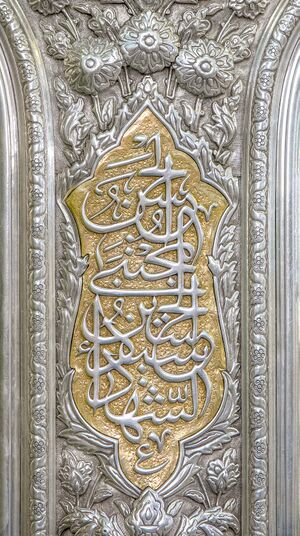 الحسن
المجتبی
الحسین
سید
الشهداء
ع